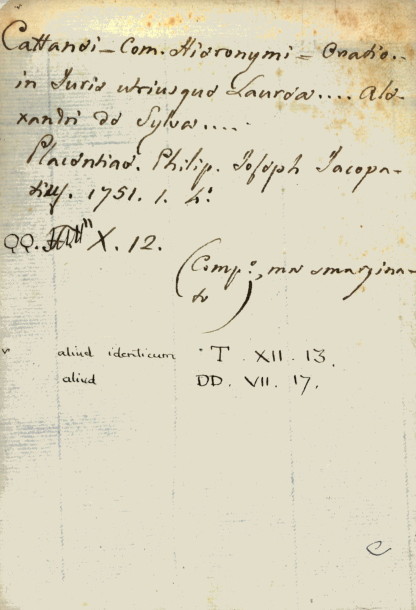 Cattanei - Com. Hieronymi = Oratio..
in Juris utriusque Laurea.... Ale-
xandri de Sylva....
Placentiae. Philip. Joseph Jacopa-
tius. 1751. 1. 4°.
QQ. X. 12.
(Comp.°, ma smargina-
to)
aliud identicum T. XII. 13.
aliud DD. VII. 17.
C